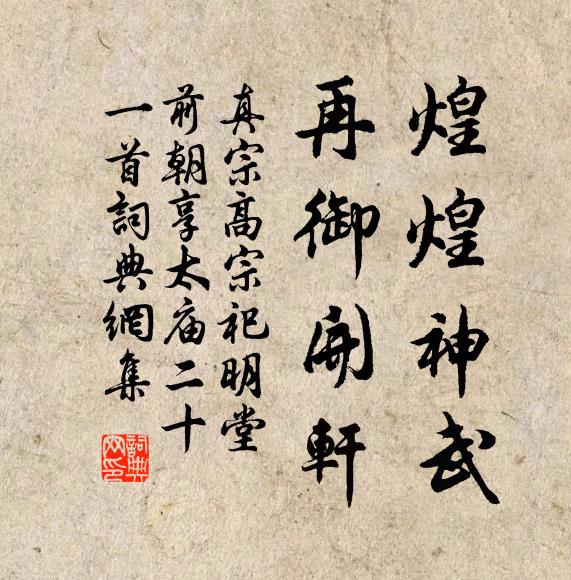 煌煌神武
再御開軒
真宗高宗祀明堂
前朝享太庙二十
一首詞典網集
詞典网印